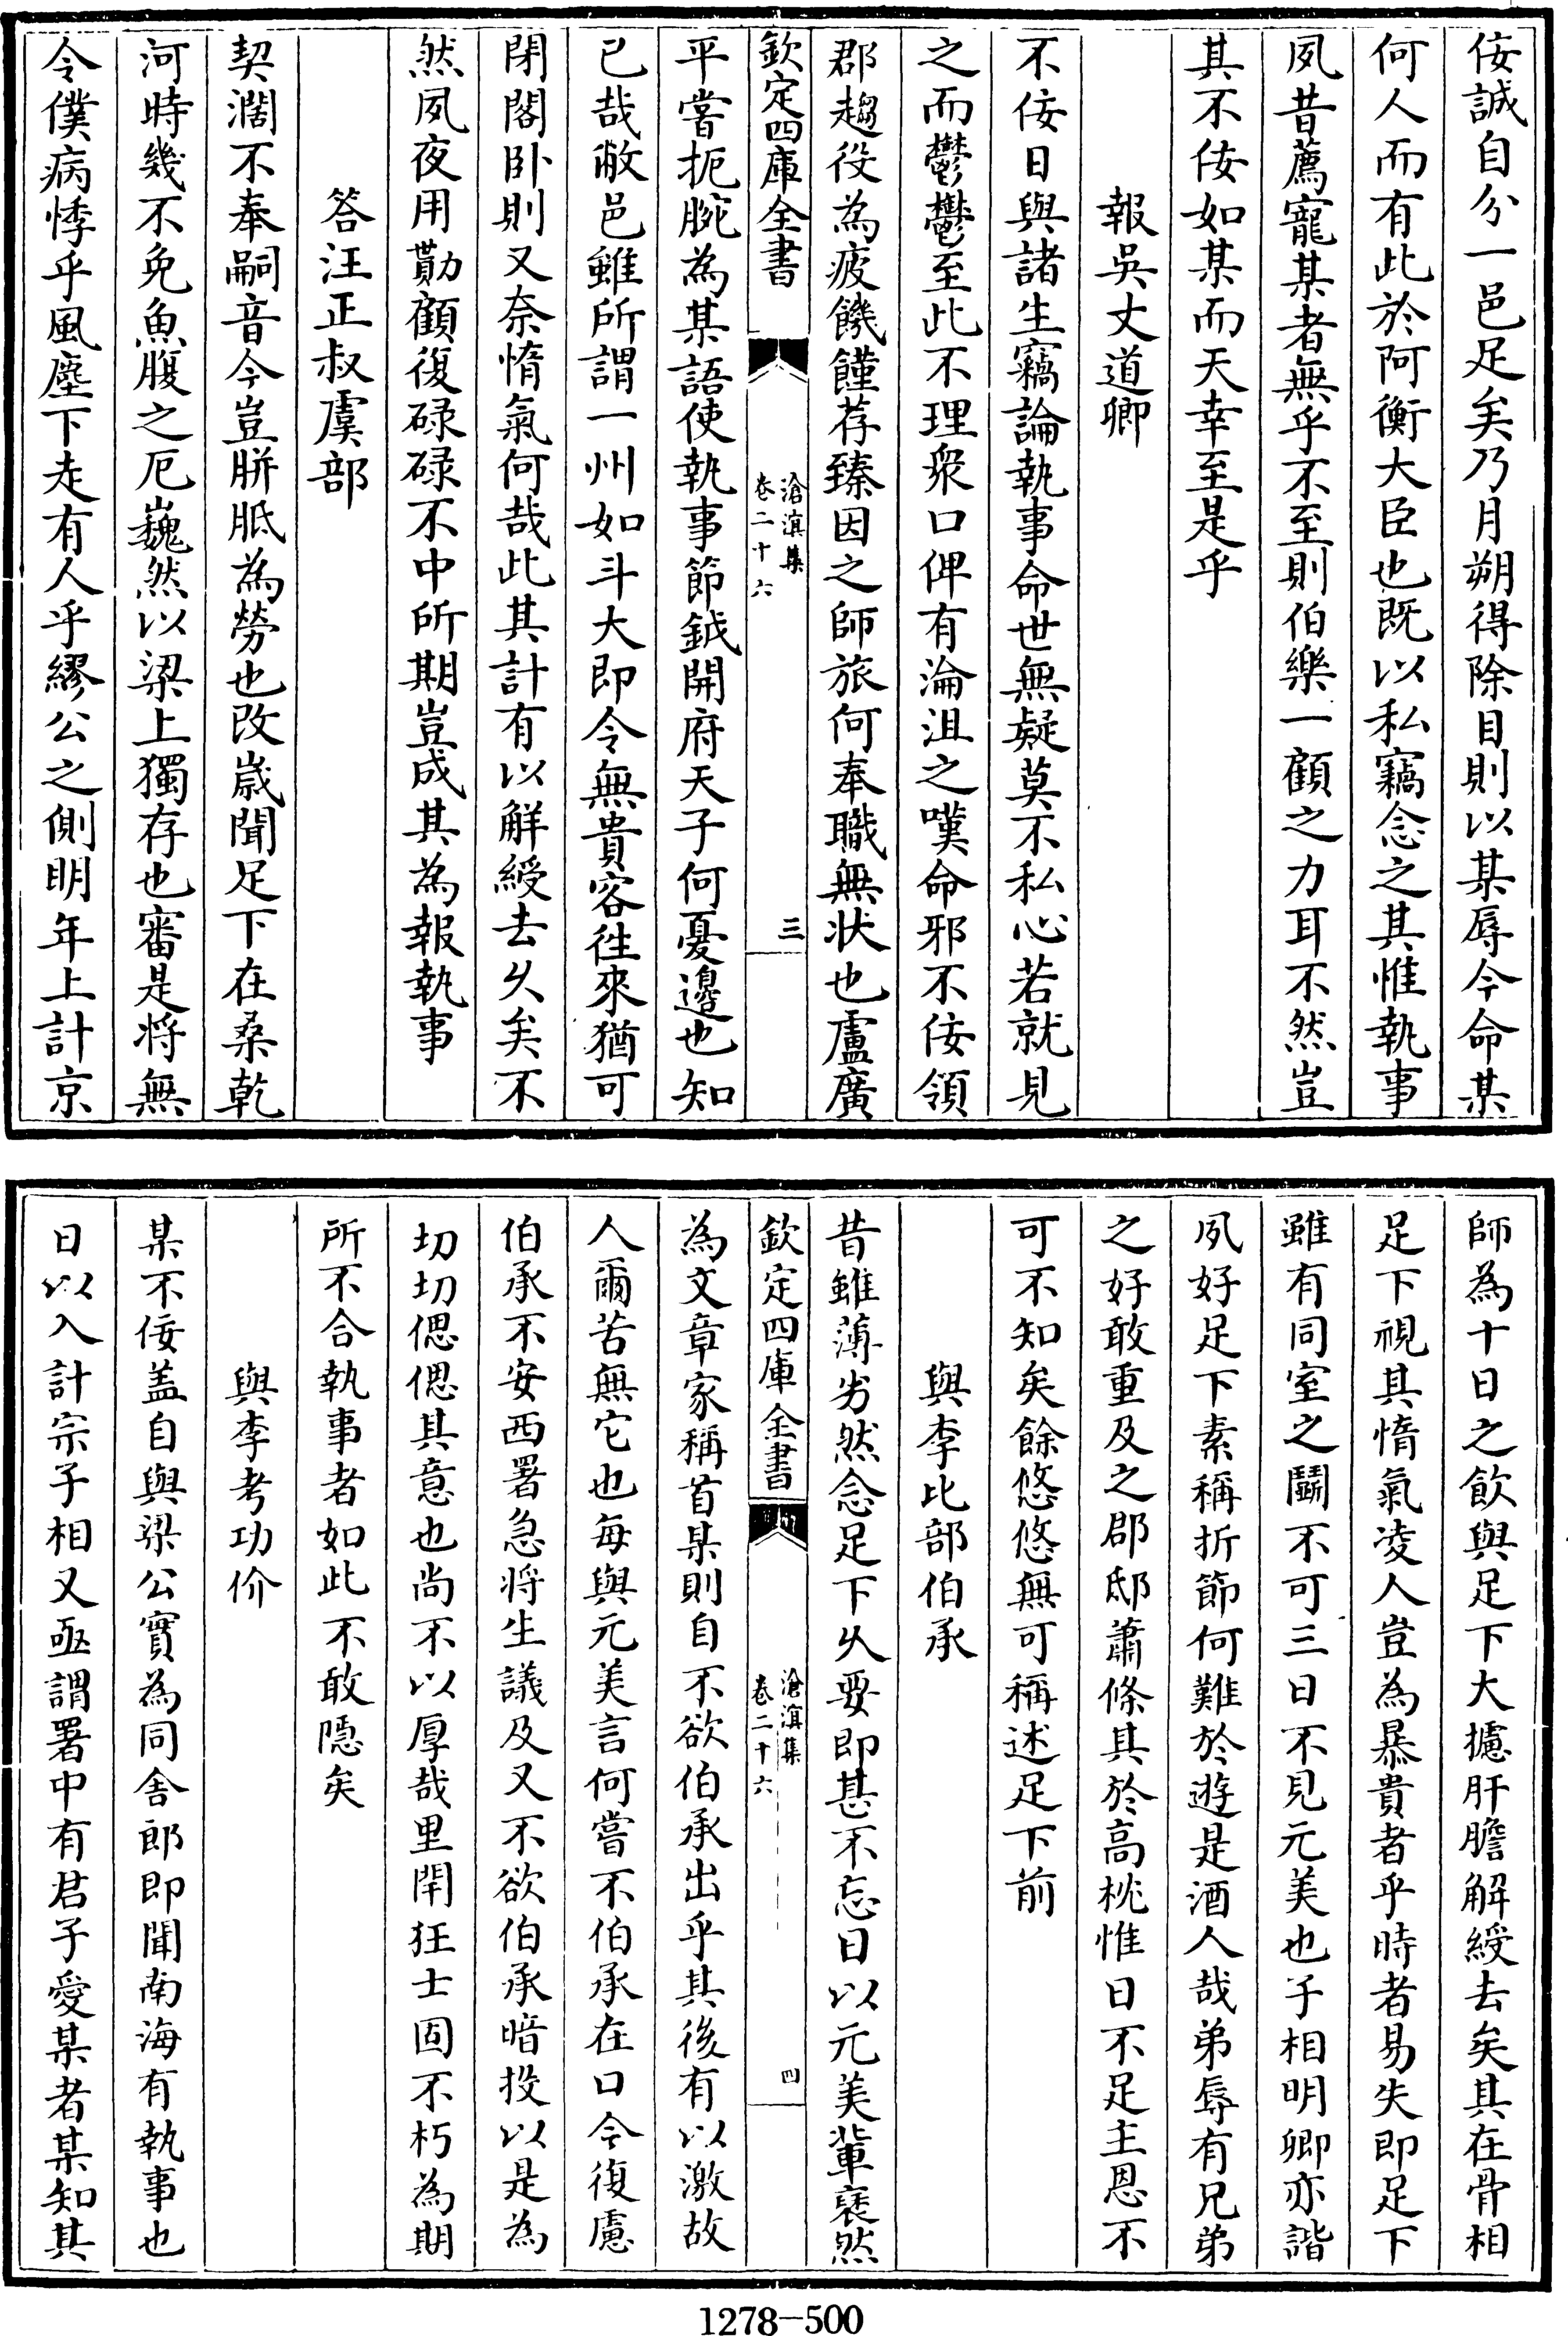 佞誠自分一邑足矣乃月朔得除目則以某辱今命某
何人而有此於阿衡大臣也既以私竊念之其惟執事
夙昔薦寵某者無乎不至則伯樂一顧之力耳不然豈
其不佞如某而天幸至是乎
報吳丈道卿
不佞日與諸生竊論執事命世無疑莫不私心若就見
之而鬱鬱至此不理衆口俾有淪沮之嘆命邪不佞領
郡趨役為疲饑饉荐臻因之師旅何奉職無状也盧廣
欽定四庫全書
滄溟集
卷二十六
三
平嘗扼腕為某語使執事節鉞開府天子何憂邉也知
已哉敝邑雖所謂一州如斗大即令無貴客徃來猶可
閉閤卧則又奈惰氣何哉此其計有以解綬去久矣不
然夙夜用勤顧復碌碌不中所期豈成其為報執事
答汪正叔虞部
契濶不奉嗣音今豈胼胝為勞也改嵗聞足下在桑乾
河時幾不免魚腹之厄巍然以梁上獨存也審是将無
令僕病悸乎風塵下走有人乎繆公之側明年上計京
師為十日之飲與足下大攄肝膽解綬去矣其在骨相
足下視其惰氣凌人豈為暴貴者乎時者易失即足下
雖有同室之鬭不可三日不見元美也子相明卿亦諧
夙好足下素稱折節何難於遊是酒人哉弟辱有兄弟
之好敢重及之郡邸蕭條其於高枕惟日不足主恩不
可不知矣餘悠悠無可稱述足下前
與李比部伯承
昔雖薄劣然念足下久要即甚不忘日以元美輩裒然
欽定四庫全書
滄溟集
卷二十六
四
為文章家稱首某則自不欲伯承出乎其後有以激故
人爾苦無它也每與元美言何嘗不伯承在口今復慮
伯承不安西署急将生議及又不欲伯承暗投以是為
切切偲偲其意也尚不以厚哉里閈狂士固不朽為期
所不合執事者如此不敢隠矣
與李考功价
某不佞盖自與梁公實為同舍郎即聞南海有執事也
日以入計宗子相又亟謂署中有君子愛某者某知其
1278-500